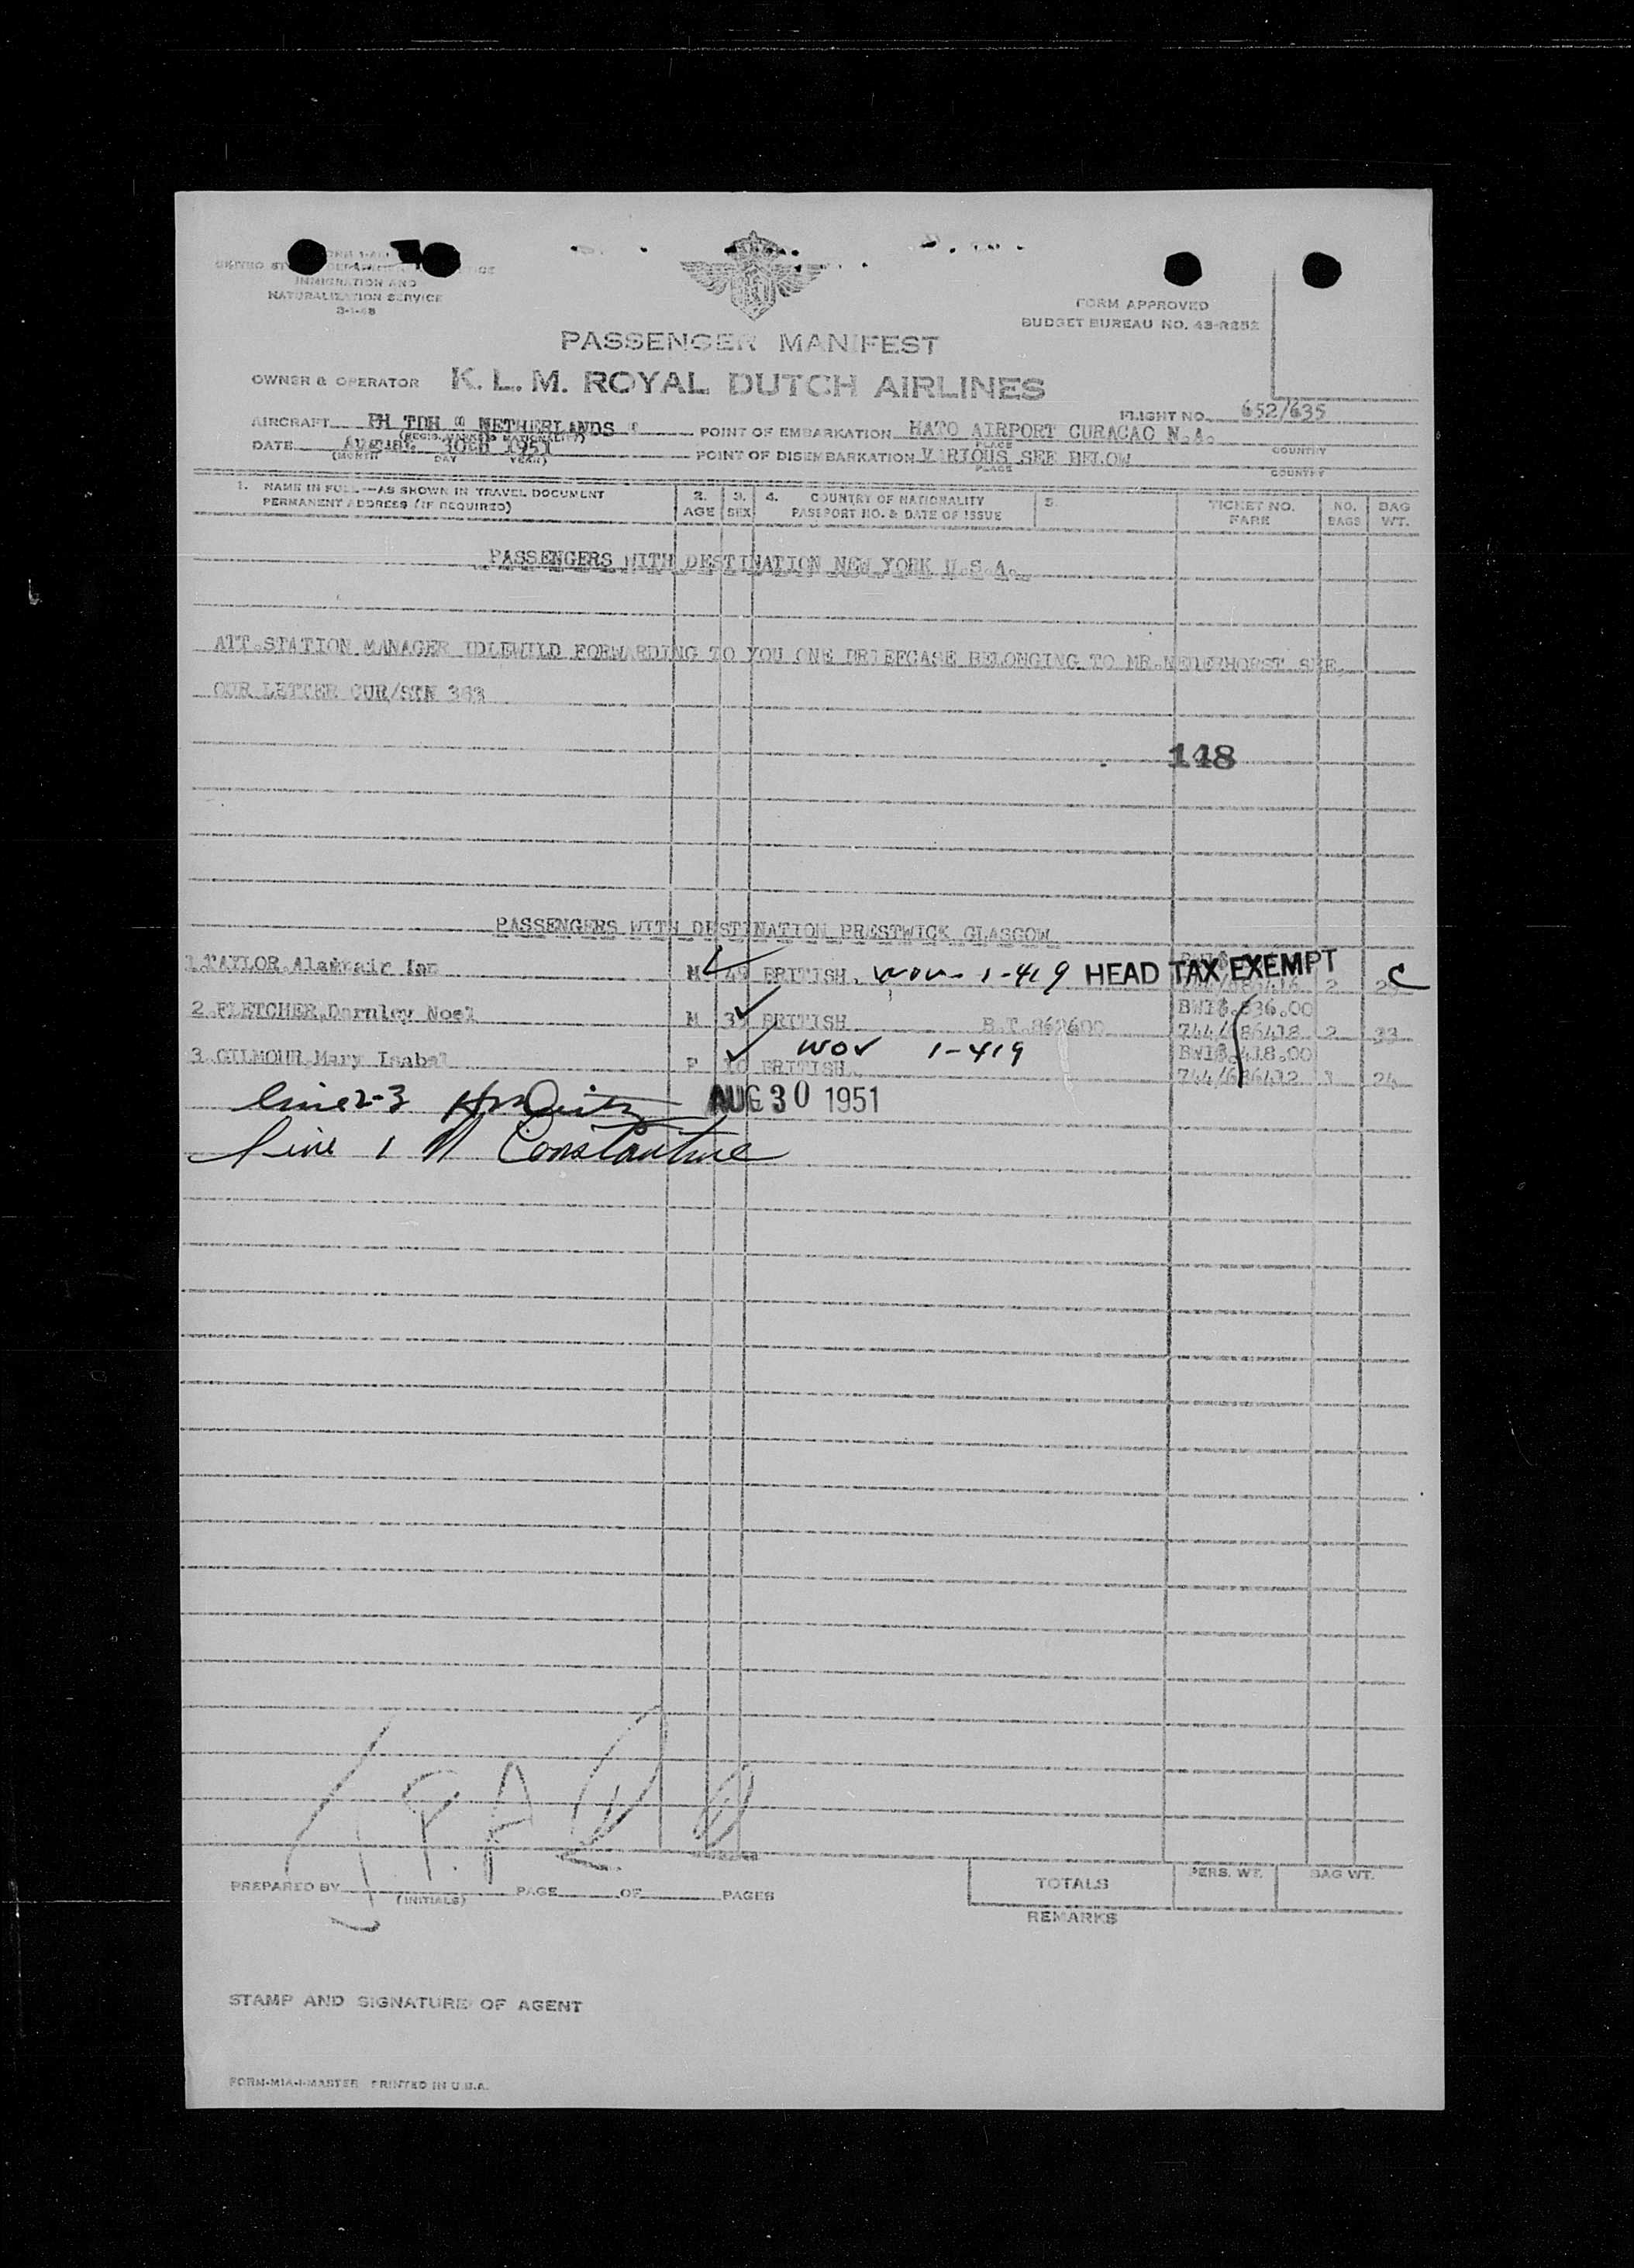 IMMIGRATION AND
NATURALIZATION SERVICE
3-1-48
FORM APPROVED
BUDGET BUREAU NO. 43-R252
PASSENGER MANIFEST
OWNER & OPERATOR K. L. M. ROYAL DUTCH AIRLINES
FLIGHT NO. 652/635
AIRCRAFT PH TDH = NETHERLANDS =
(REGIS. MARKS & NATIONALITY)
POINT OF EMBARKATION HATO AIRPORT CURACAO N.A.
PLACE COUNTRY
DATE August 1951
(MONTH DAY YEAR)
POINT OF DISEMBARKATION VARIOUS SEE BELOW
PLACE COUNTRY
1. NAME IN FULL—AS SHOWN IN TRAVEL DOCUMENT
PERMANENT ADDRESS (IF REQUIRED)
2. AGE
3. SEX
4. COUNTRY OF NATIONALITY
PASSPORT NO. & DATE OF ISSUE
5.
TICKET NO.
FARE
NO. BAGS
BAG WT.
PASSENGERS WITH DESTINATION NEW YORK U.S.A.
ATT.STATION MANAGER IDLEWILD FORWARDING TO YOU ONE BRIEFCASE BELONGING TO MR. SEE
OUR LETTER CUR/STN 363
148
PASSENGERS WITH DESTINATION PRESTWICK GLASGOW
1.TAYLOR, Ian M BRITISH. 1-419 HEAD TAX EXEMPT 2 C
BWI$.836.00
2.FLETCHER,Darnley Noel M BRITISH B.T. 744/686418 2 33
WOV 1-419
BWI$.418.00
3.GILMOUR,Mary Isabel F BRITISH. 744/686412 24
line 2-3 AUG 30 1951
line 1 Constantine
PREPARED BY (INITIALS) PAGE OF PAGES
TOTALS
PERS. WT.
BAG WT.
REMARKS
STAMP AND SIGNATURE OF AGENT
FORM-MIA-I-MASTER PRINTED IN U.S.A.